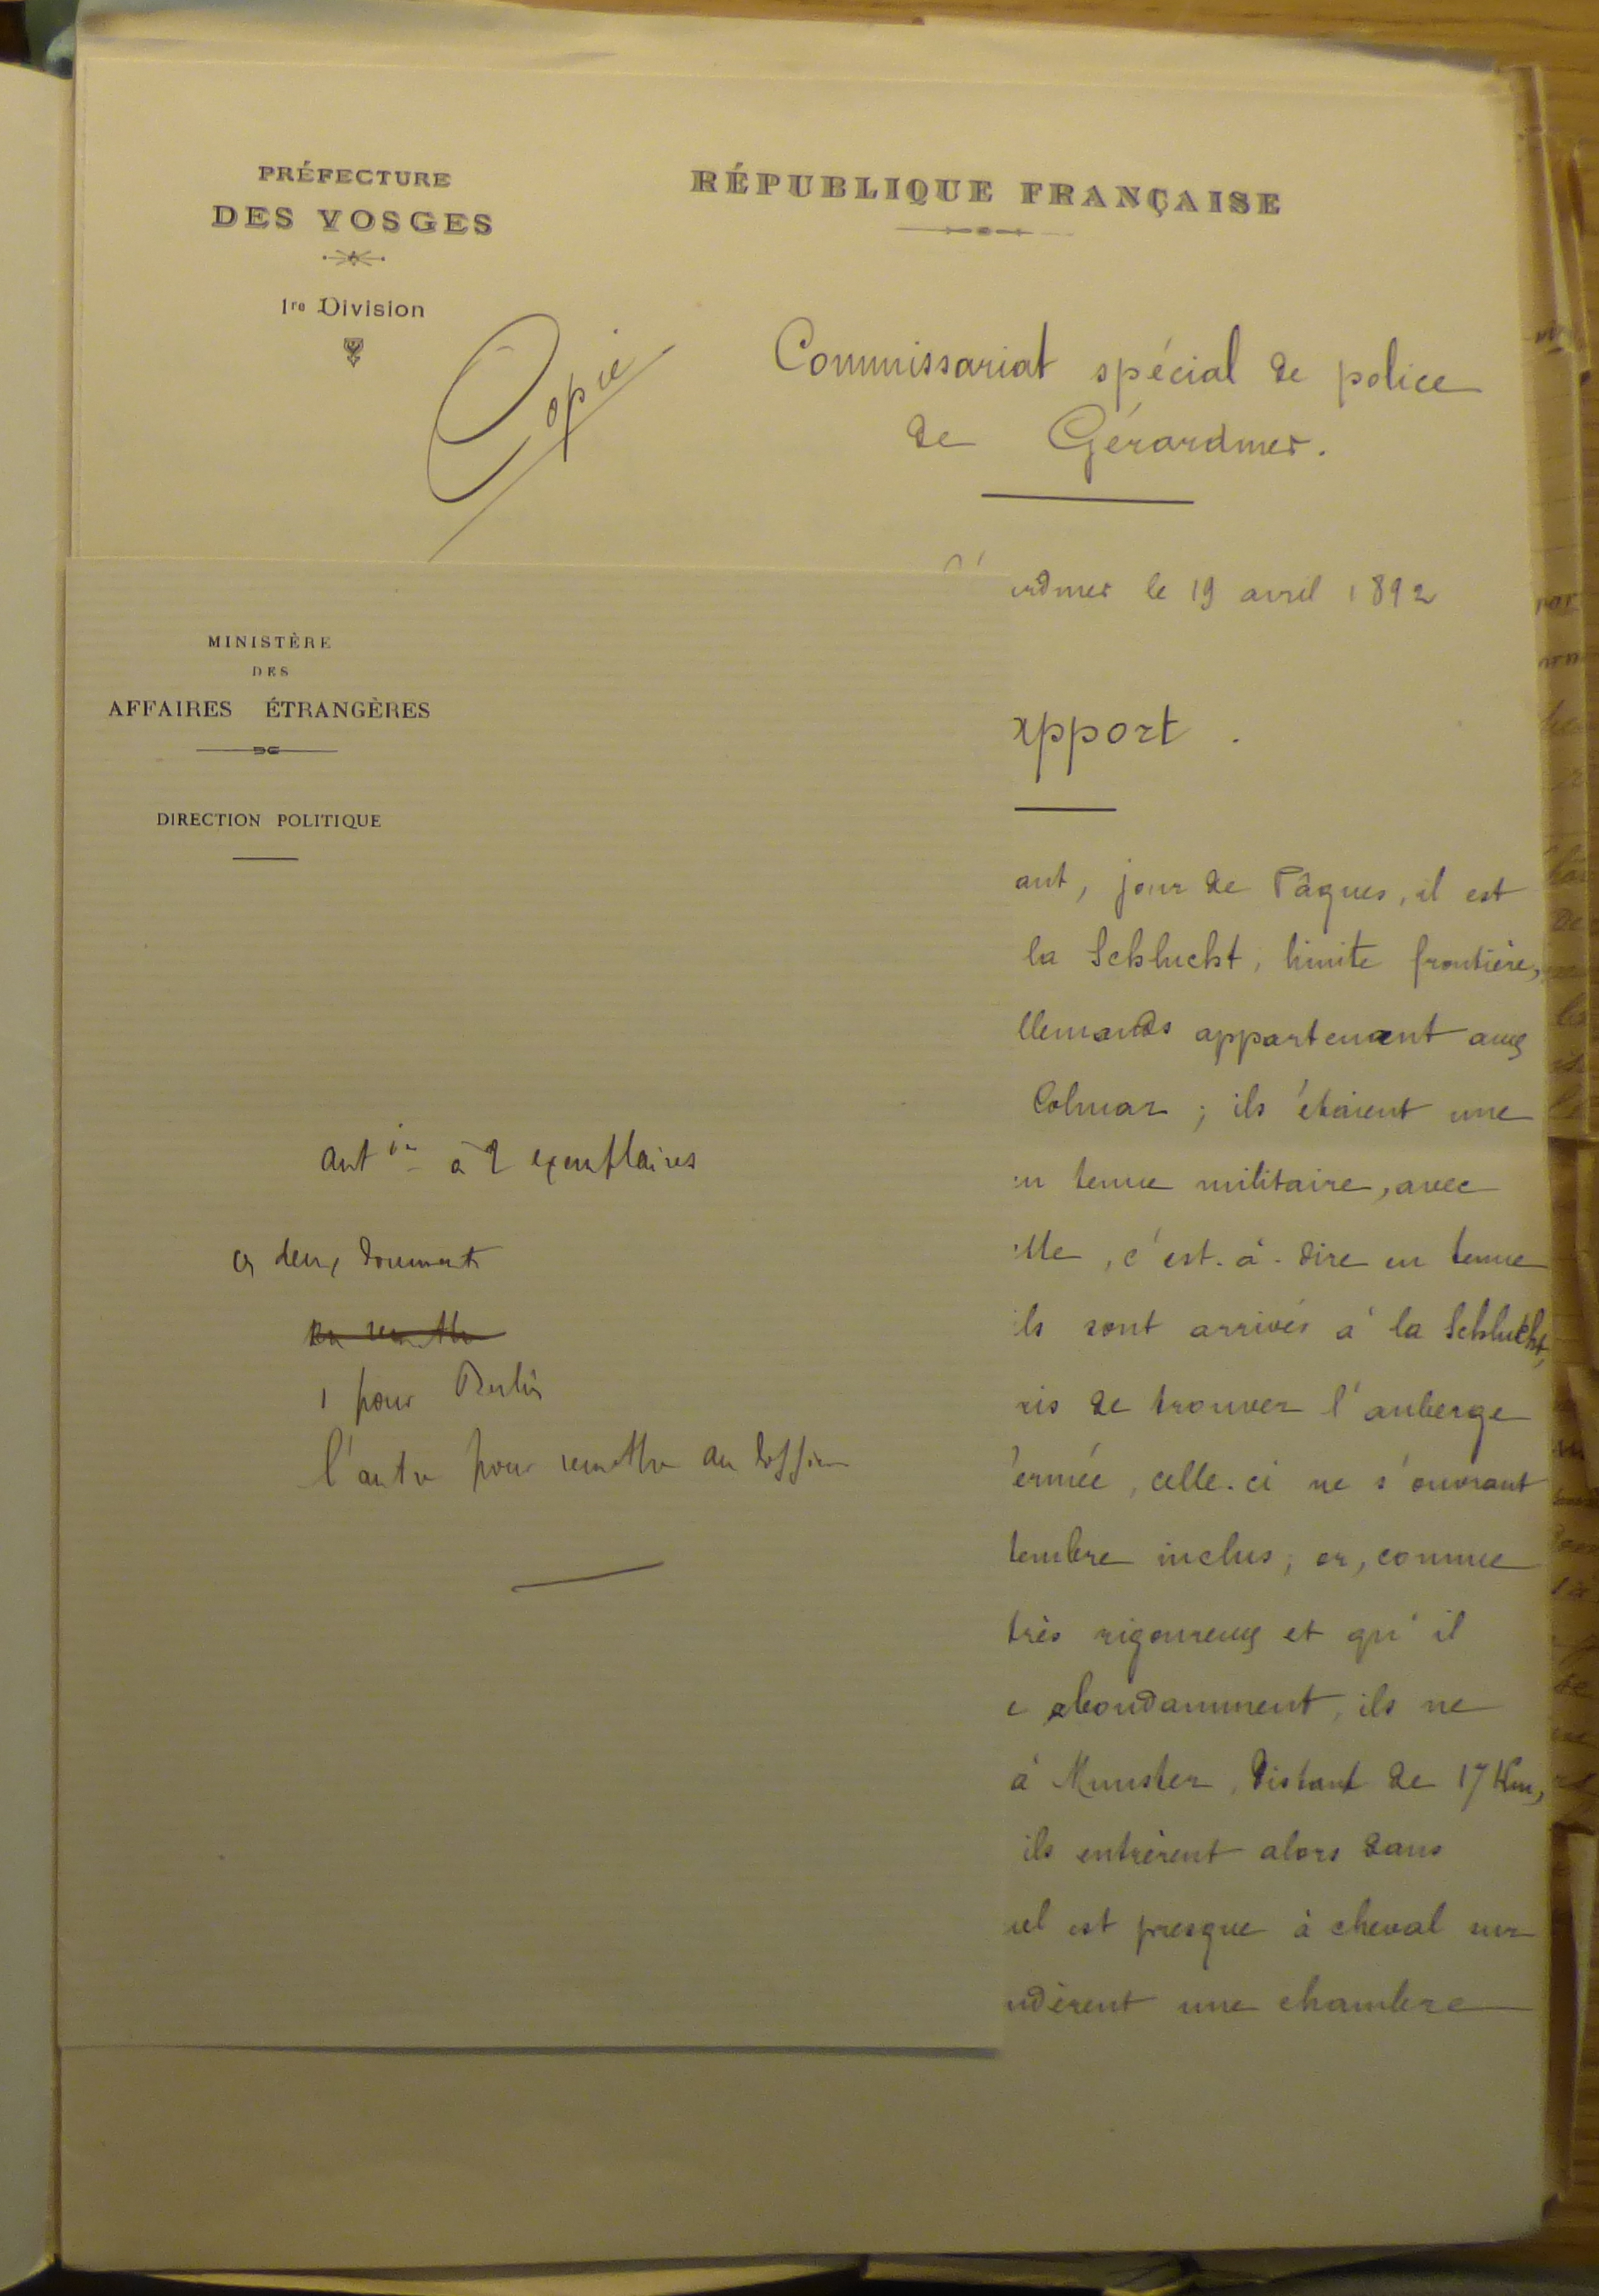 PRÉFECTURE
DES VOSGES
1re Division
RÉPUBLIQUE FRANÇAISE
Copie
Commissariat spécial de police
de Gérardmer.
rdmer le 19 avril 1892
apport.
ant, jour de Pâques, il est
la Schlucht, limite frontière,
llemands appartenant aux
Colmar ; ils étaient une
en tenue militaire, avec
lle, c'est-à-dire en tenue
ils sont arrivés à la Schlucht,
ris de trouver l'auberge
fermée, celle-ci ne s'ouvrant
tembre inclus ; or, comme
très rigoureux et qu'il
e abondamment, ils ne
à Munster, distant de 17 Km,
ils entrèrent alors dans
uel est presque à cheval sur
ndèrent une chambre
MINISTÈRE
DES
AFFAIRES ÉTRANGÈRES
DIRECTION POLITIQUE
à 2 exemplaires
ces deux documents
1 pour Berlin
l'autre pour remettre au dossier